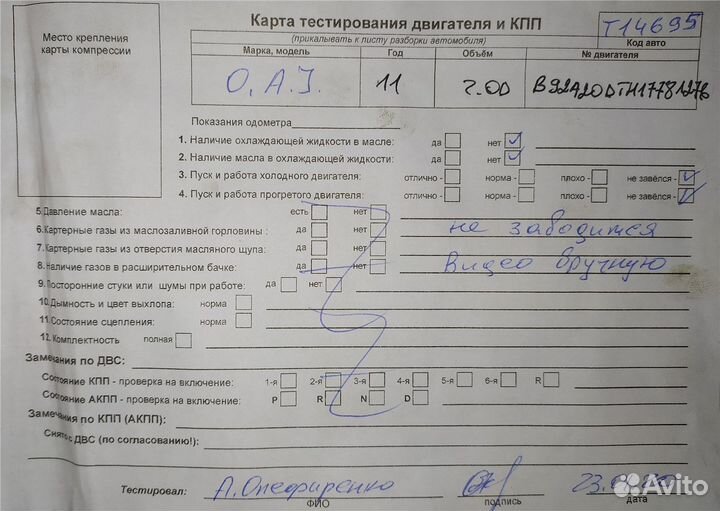 Место крепления
карты компрессии
Карта тестирования двигателя и КПП
(прикалывать к листу разборки автомобиля)
Т14695
Код авто
Марка, модель Год Объём № двигателя
O.A.J. 11 2.00
Показания одометра
1. Наличие охлаждающей жидкости в масле: да нет
2. Наличие масла в охлаждающей жидкости: да нет
3. Пуск и работа холодного двигателя: отлично - норма - плохо - не завёлся -
4. Пуск и работа прогретого двигателя: отлично - норма - плохо - не завёлся -
5. Давление масла: есть нет
6. Картерные газы из маслозаливной горловины: да нет не заводится
7. Картерные газы из отверстия масляного щупа: да нет
8. Наличие газов в расширительном бачке: да нет Видео вручную
9. Посторонние стуки или шумы при работе: да нет
10. Дымность и цвет выхлопа: норма
11. Состояние сцепления: норма
12. Комплектность полная
Замечания по ДВС:
Состояние КПП - проверка на включение: 1-я 2-я 3-я 4-я 5-я 6-я R
Состояние АКПП - проверка на включение: P R N D
Замечания по КПП (АКПП):
Снято с ДВС (по согласованию!):
Тестировал: А. 23.
ФИО подпись
Avito